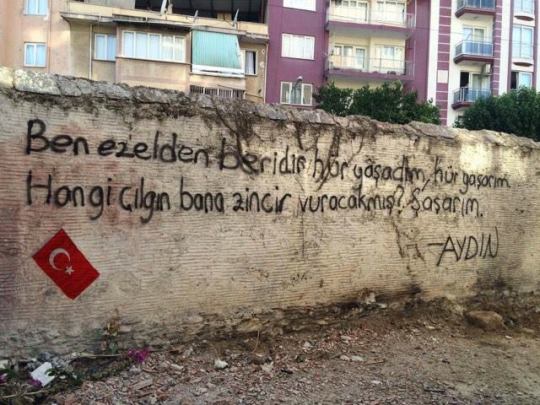 Ben ezelden beridir hür yaşadım, hür yaşarım.
Hangi çılgın bana zincir vuracakmış? Şaşarım.
-AYDIN